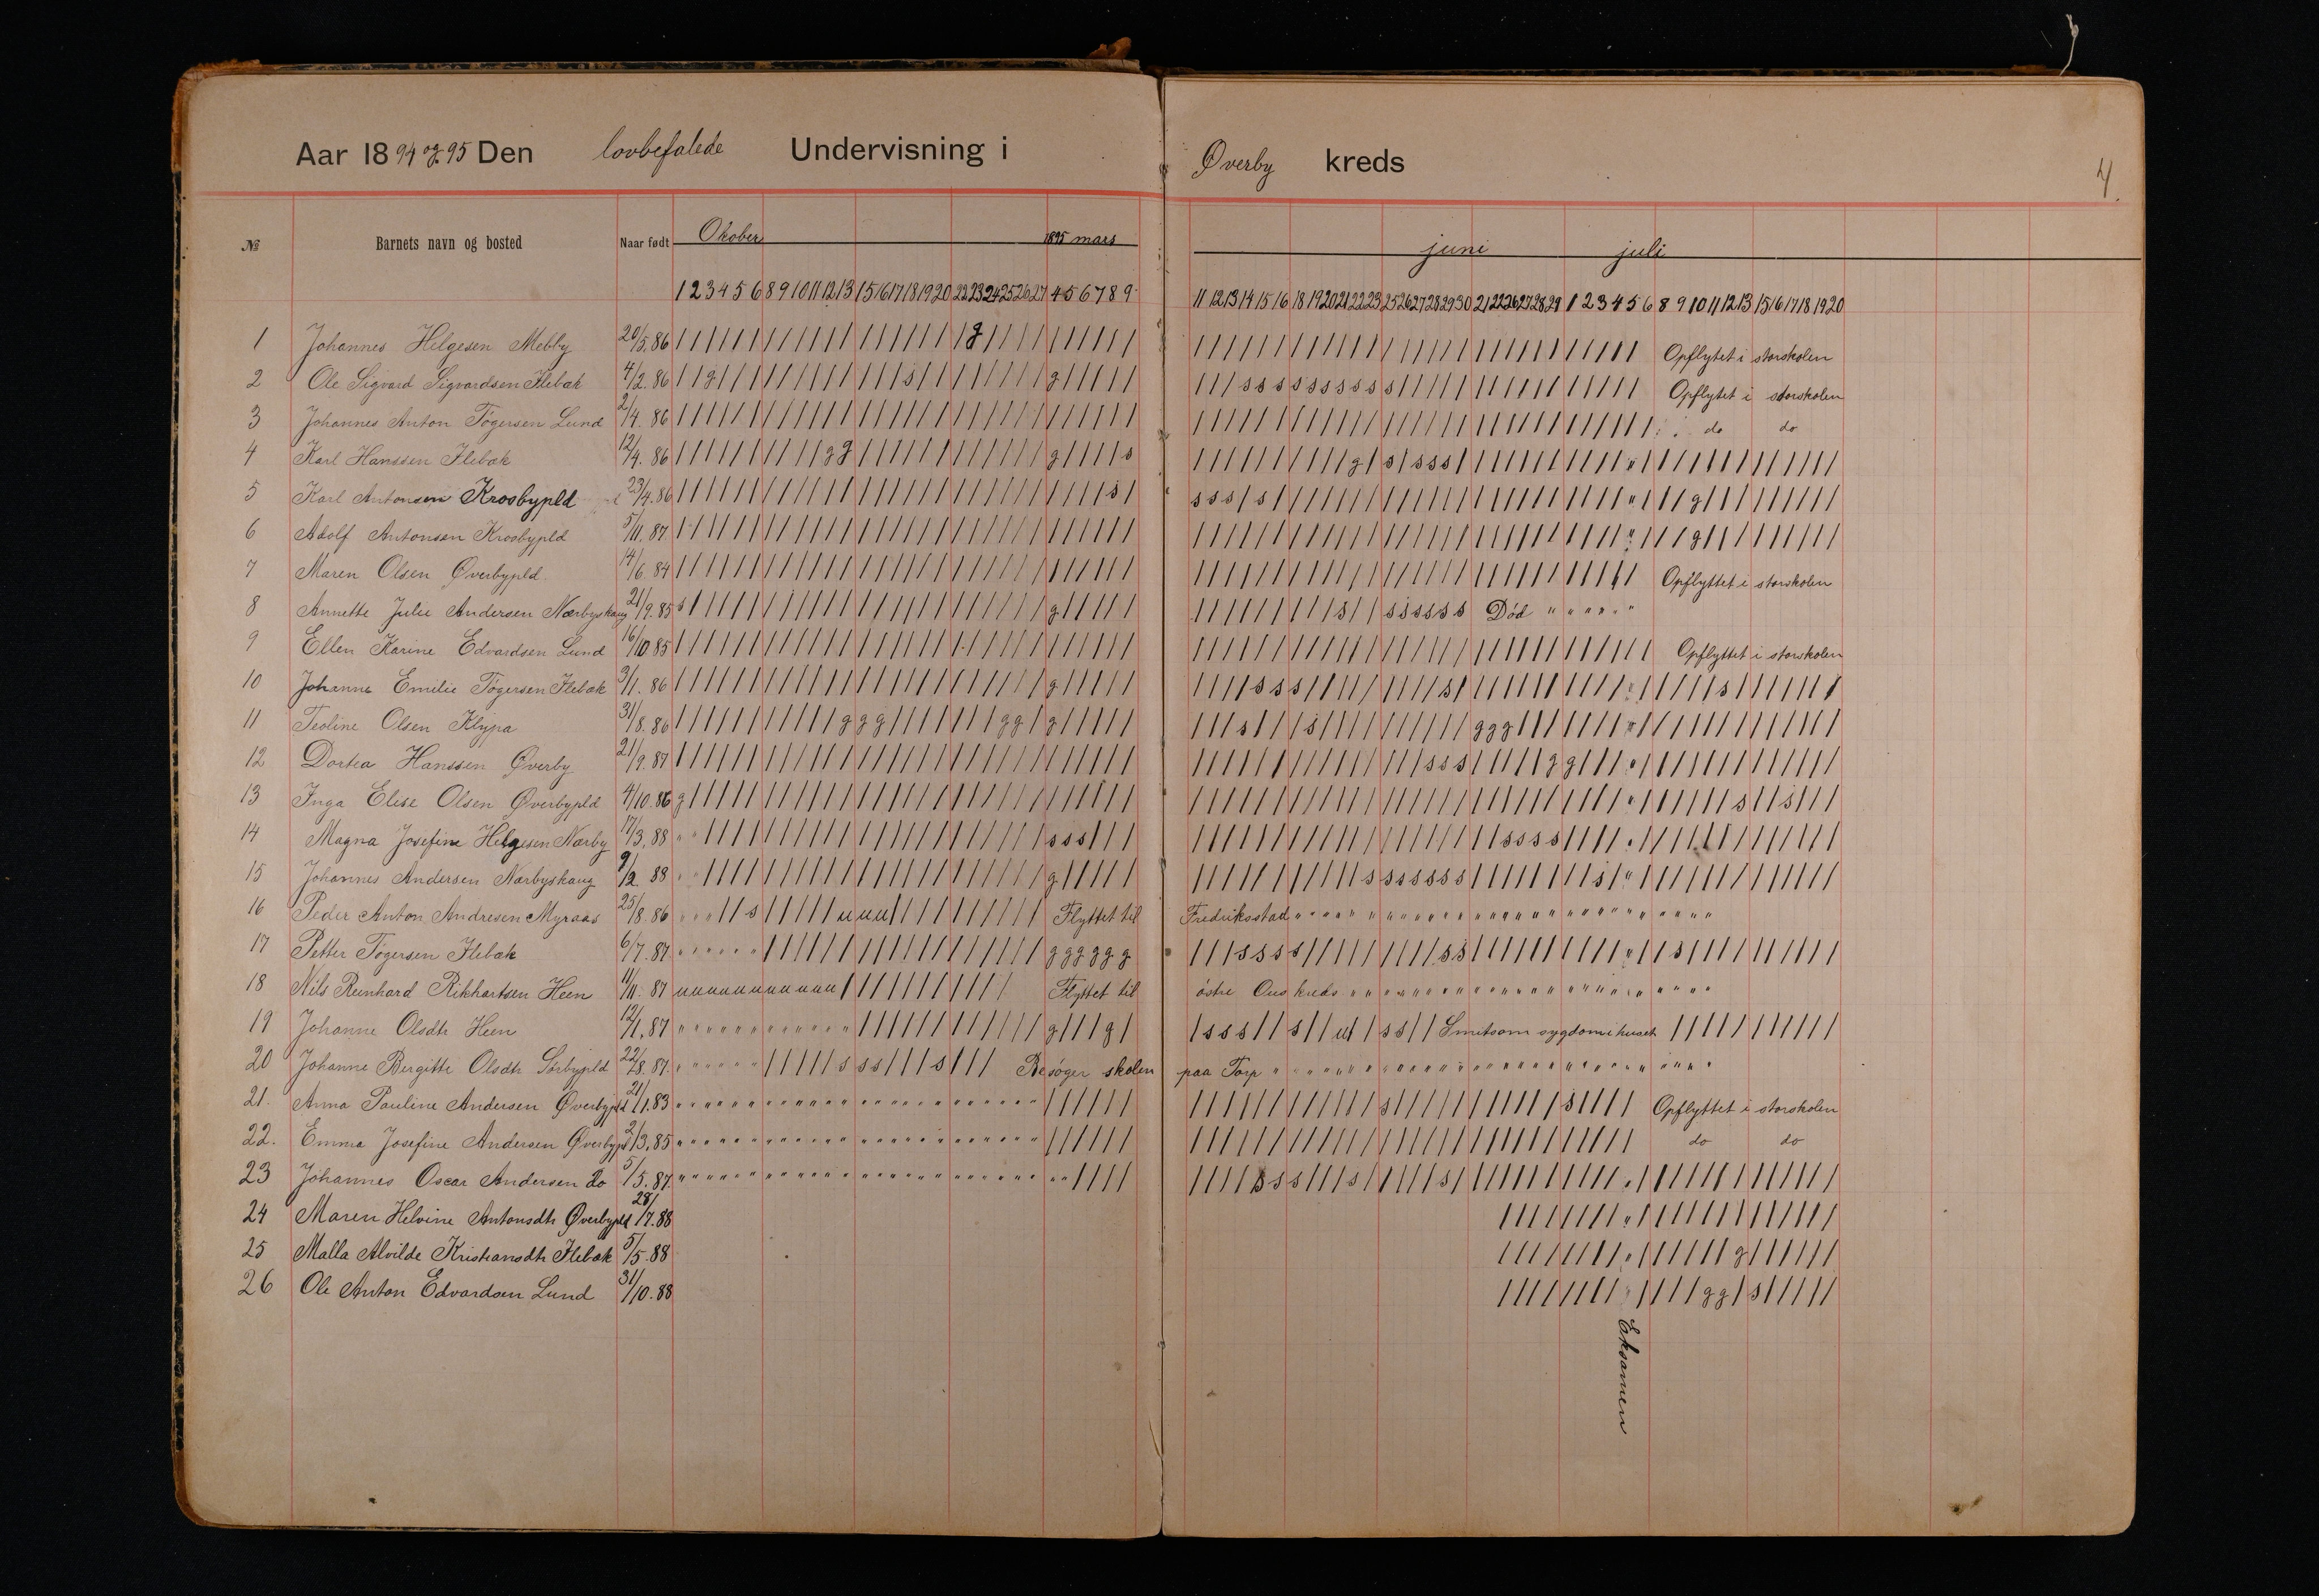 Aar 1894 og 95 Den lovbefalede Undervisning i Øverby kreds
4.
№ Barnets navn og bosted Naar født Okober 1895 mars juni juli
1 2 3 4 5 6 8 9 10 11 12 13 15 16 17 18 19 20 22 23 24 25 26 27 4 5 6 7 8 9 11 12 13 14 15 16 18 19 20 21 22 23 25 26 27 28 29 30 21 22 26 27 28 29 1 2 3 4 5 6 8 9 10 11 12 13 15 16 17 18 19 20
1 Johannes Helgesen Mebby 20/5.86 Opflytet i storskolen
2 Ole Sigvard Sigvardsen Flebak 4/2.86 Opflytet i storskolen
3 Johannes Anton Tøgersen Lund 2/4.86 do do
4 Karl Hanssen Flebak 12/4.86
5 Karl Antonsen Krosbypld 23/4.86
6 Adolf Antonsen Krosbypld 5/11.87
7 Maren Olsen Øverbypld 14/6.84 Opflyttet i storskolen
8 Annette Julie Andersen Nærbyskaug 21/9.85 Død
9 Ellen Karine Edvardsen Lund 16/10 85 Opflyttet i storskolen
10 Johanne Emilie Tøgersen Flebak 3/1.86
11 Teoline Olsen Klypa 31/8.86
12 Dortea Hanssen Øverby 21/9.87
13 Inga Elise Olsen Øverbypld 4/10.86
14 Magna Josefine Helgesen Nærby 17/3,88
15 Johannes Andersen Nærbyskaug 9/2 88
16 Peder Anton Andresen Myraas 25/8.86 Flyttet til Fredriksstad
17 Petter Tøgersen Flebak 6/7.87
18 Nils Reinhard Rikhartsen Heen 11/11.87 Flyttet til østre Ous kreds
19 Johanne Olsdtr Heen 12/1,87 Smitsom sygdom i huset
20 Johanne Bergitte Olsdtr Sørbypld 22/8.87. Besøger skolen paa Torp
21. Anna Pauline Andersen Øverbypld 21/1.83 Opflyttet i storskolen
22. Emma Josefine Andersen Øverbypl 2/3,85 do do
23 Johannes Oscar Andersen do 5/5.87.
24 Maren Helvine Antonsdtr Øverbypld 28/7.88
25 Malla Alvilde Kristiansdtr Flebak 5/5.88
26 Ole Anton Edvardsen Lund 31/10.88
Eksamen